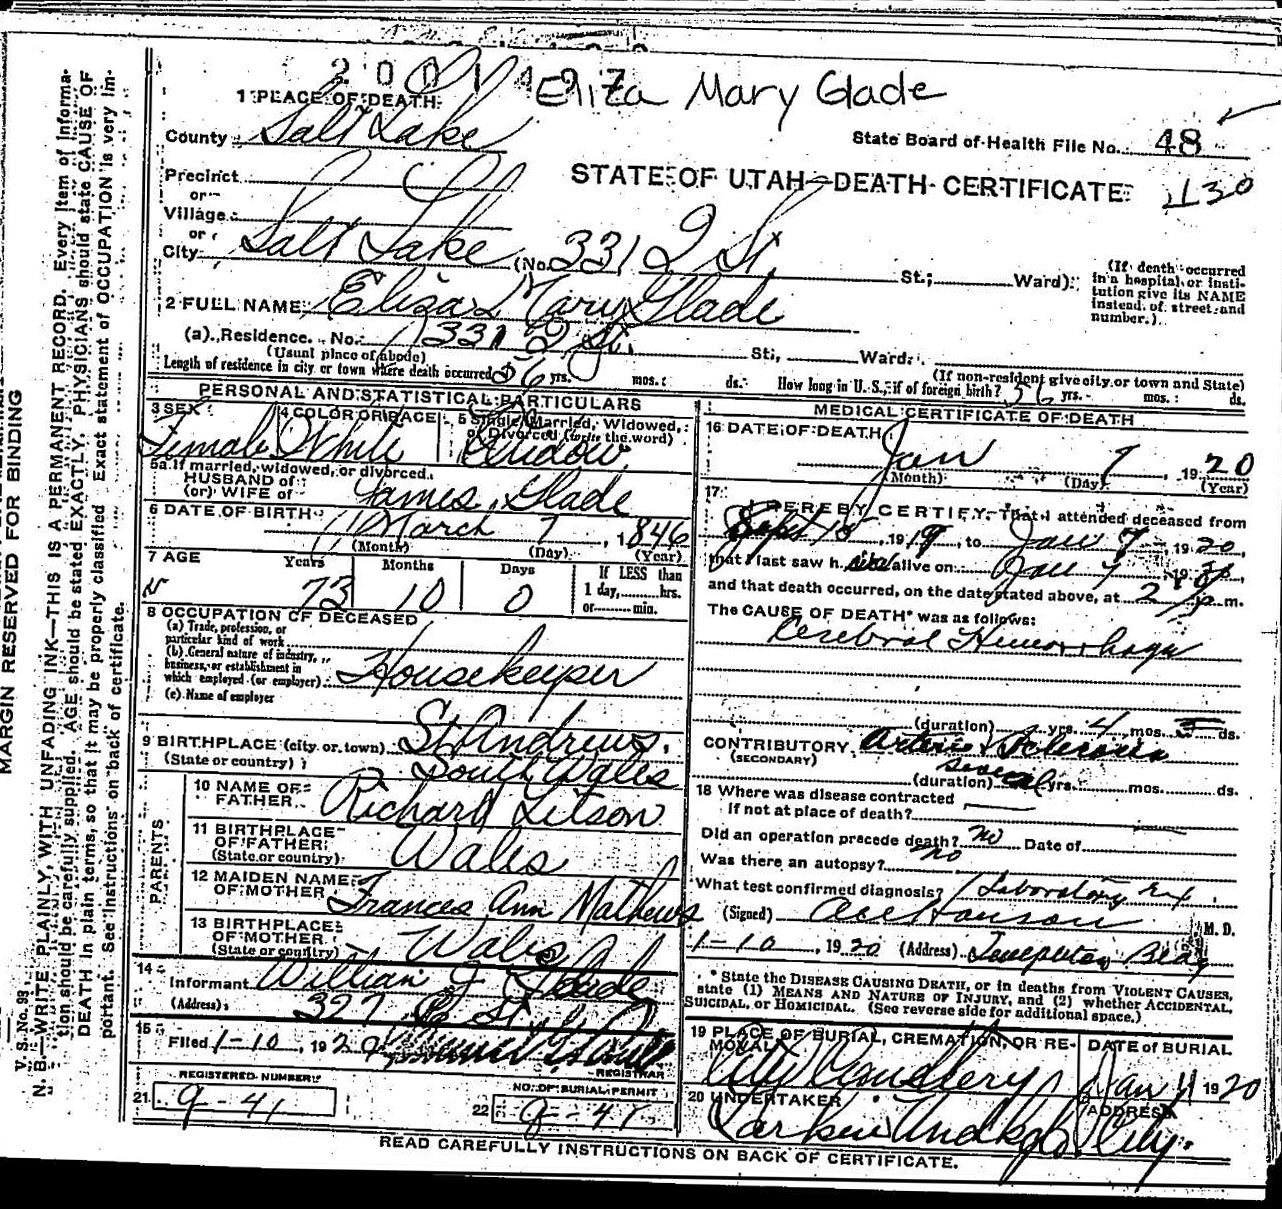 2 0 0 1 4 2 7
Eliza Mary Glade
1 PLACE OF DEATH
County Salt Lake
State Board of Health File No. 48
Precinct
STATE OF UTAH—DEATH CERTIFICATE 130
or
Village
or
City Salt Lake (No. 331 Q St. St.; Ward)
(If death occurred in a hospital or institution give its NAME instead of street and number.)
2 FULL NAME Eliza Mary Glade
(a) Residence. No. 331 Q St. St., Ward.
(Usual place of abode) (If non-resident give city or town and State)
Length of residence in city or town where death occurred 56 yrs. mos. ds. How long in U. S., if of foreign birth? 56 yrs. mos. ds.
PERSONAL AND STATISTICAL PARTICULARS
3 SEX Female
4 COLOR OR RACE White
5 Single, Married, Widowed, or Divorced (write the word) Widow
5a If married, widowed, or divorced
HUSBAND of
(or) WIFE of James Glade
6 DATE OF BIRTH March 7, 1846
(Month) (Day) (Year)
7 AGE Years Months Days If LESS than
73 10 0 1 day, hrs.
or min.
8 OCCUPATION OF DECEASED
(a) Trade, profession, or
particular kind of work
(b) General nature of industry,
business, or establishment in
which employed (or employer) Housekeeper
(c) Name of employer
9 BIRTHPLACE (city or town) St Andrews,
(State or country) South Wales
PARENTS
10 NAME OF
FATHER Richard Litson
11 BIRTHPLACE
OF FATHER
(State or country) Wales
12 MAIDEN NAME
OF MOTHER Frances Ann Mathews
13 BIRTHPLACE
OF MOTHER
(State or country) Wales
14
Informant William J Glade
(Address) 327 St
15
Filed 1-10, 1920
REGISTRAR
REGISTERED NUMBER NO. OF BURIAL PERMIT
21 9-41 22 9-41
MEDICAL CERTIFICATE OF DEATH
16 DATE OF DEATH
Jan 7 1920
(Month) (Day) (Year)
17
I HEREBY CERTIFY, That I attended deceased from
Sept 15, 1919, to Jan 7, 1920,
that I last saw h alive on Jan 7 19
and that death occurred, on the date stated above, at 2 p m.
The CAUSE OF DEATH* was as follows:
Cerebral Hemorrhage
(duration) yrs. 4 mos. ds.
CONTRIBUTORY Arterio Sclerosis
(SECONDARY)
(duration) several yrs. mos. ds.
18 Where was disease contracted
if not at place of death?
Did an operation precede death? no Date of
Was there an autopsy? no
What test confirmed diagnosis? Laboratory
(Signed) M. D.
1-10, 1920 (Address) Templeton Bldg
*State the DISEASE CAUSING DEATH, or in deaths from VIOLENT CAUSES,
state (1) MEANS AND NATURE OF INJURY, and (2) whether ACCIDENTAL,
SUICIDAL, OR HOMICIDAL. (See reverse side for additional space.)
19 PLACE OF BURIAL, CREMATION, OR RE-
MOVAL DATE of BURIAL
City Cemetery Jan 11 1920
20 UNDERTAKER ADDRESS
Larkin Undtkg Co City
READ CAREFULLY INSTRUCTIONS ON BACK OF CERTIFICATE.
MARGIN RESERVED FOR BINDING
V. S. No. 93
N. B.—WRITE PLAINLY WITH UNFADING INK—THIS IS A PERMANENT RECORD. Every item of Informa-
tion should be carefully supplied. AGE should be stated EXACTLY. PHYSICIANS should state CAUSE OF
DEATH in plain terms, so that it may be properly classified. Exact statement of OCCUPATION is very im-
portant. See instructions on back of certificate.